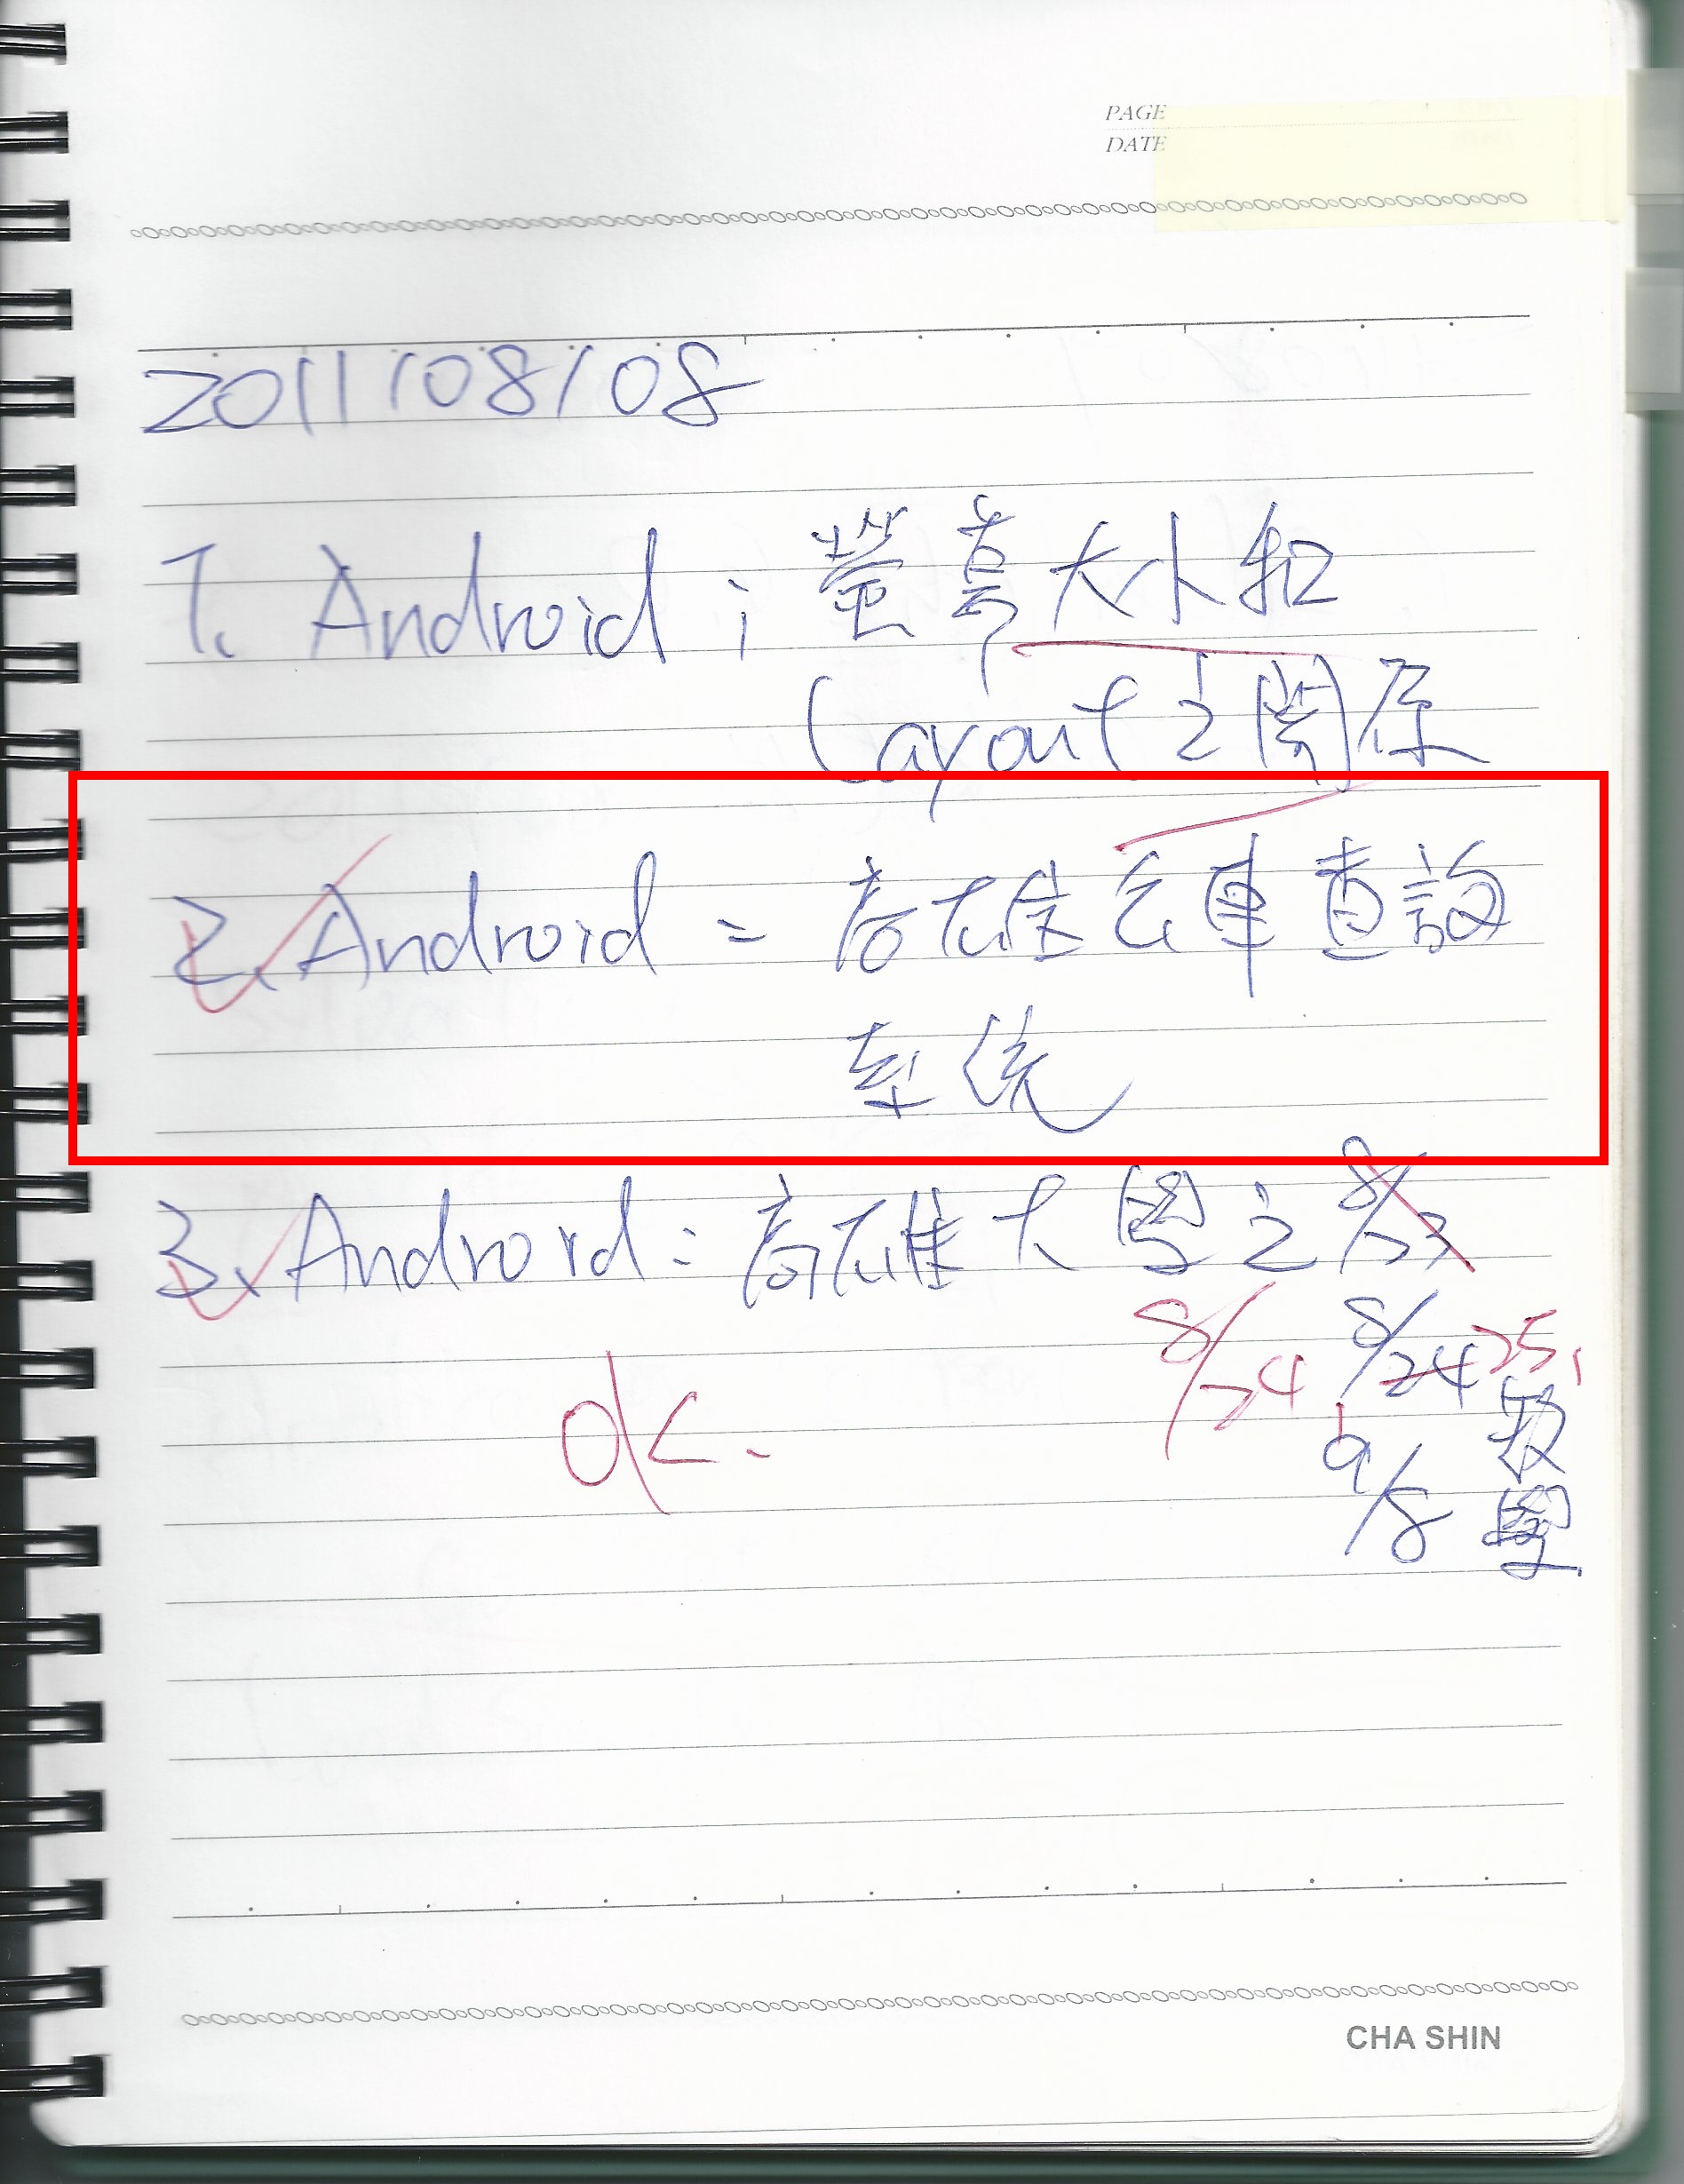 PAGE
DATE
2011/08/08
1. Android: 螢幕大小和
Layout之關係
2. Android: 高雄公車查詢
系統
3. Android: 高雄大學之 8/23
8/24 8/24 25,
ok. 9/8
CHA SHIN